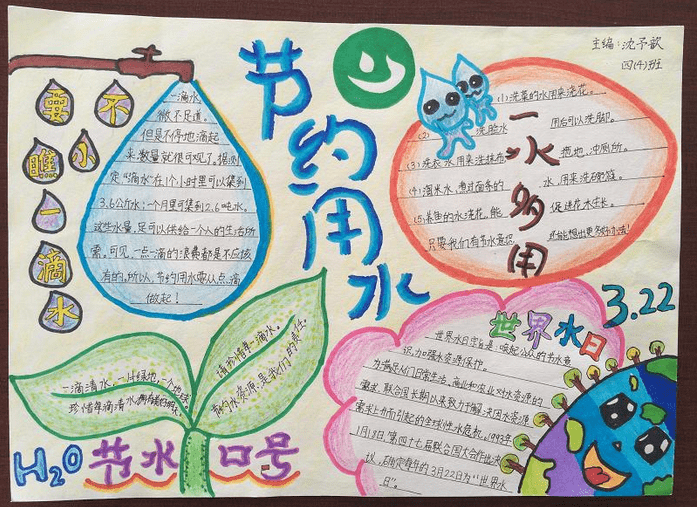 主编:沈予歆
四(4)班
节约用水
不要小瞧一滴水
一滴水
微不足道。
但是不停地滴起
来,数量就很可观了。据测
定“滴水”在1个小时里可以集到
3.6公斤水;一个月里可集到2.6吨水。
这些水量,足可以供给一个人的生活所
需。可见,一点一滴的浪费都是不应该
有的。所以,节约用水要从点滴
做起!
一水多用
(1)洗菜的水用来浇花。
(2) 洗脸水 用后可以洗脚。
(3)洗衣水用来洗拖布 拖地、冲厕所。
(4)淘米水、煮过面条的 水,用来洗碗筷。
(5)养鱼的水浇花,能 促进花木生长。
只要我们有节水意识 还能想出更多好办法!
一滴清水,一片绿地,一个地球。
珍惜每滴清水
请珍惜每一滴水。
节约水资源,是我们的责任。
H₂O
节水口号
3.22
世界水日
世界水日宗旨是:唤起公众的节水意
识,加强水资源保护。
为满足人们日常生活、商业和农业对水资源的
需求,联合国长期以来致力于解决因水资源
需求上升而引起的全球性水危机。1993年
1月18日,第四十七届联合国大会作出决
议,确定每年的3月22日为“世界水
日”。